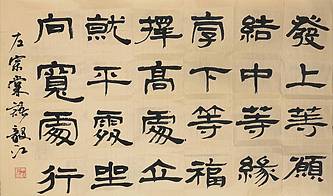 發上等願
結中等緣
享下等福
擇高處立
就平處坐
向寬處行
左宗棠語毅江